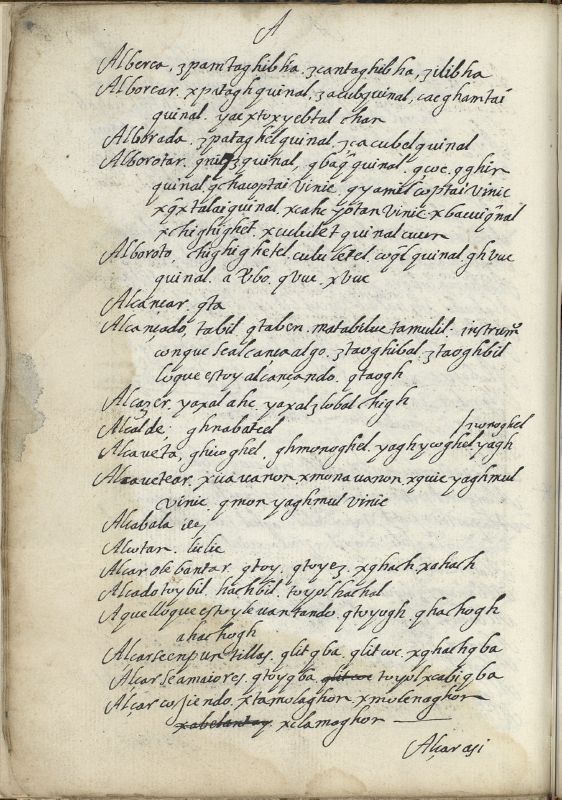 A
Alberca, ʒpamtaghibha. ʒcantaghibha, ʒilibha
Alborcar. xpitagh quinal, ʒacubquinal, caeghamtai
quinal. yaextoxyebtal chan
Alborada. ʒpataghel quinal, ʒcacubel quinal
Alborotar. quinal, gba quinal. qcoc. qghir
quinal. qchacoptai vinic. qyamel coptai vinic
xtalai quinal. xcahc yotan vinic.
xchighighel. xcululet quinal cuun
Alboroto, chighighetel. cululetel. quinal. ghvuc
quinal. a vbo. qvuc. xvuc
Alcançar. qta
Alcançado, tabil. qtaben. matabilue tamulil. instrumo
con que se alcança algo. ʒtaoghibal. ʒtaoghbil
loque estoy alcançando. qtaogh
Alcaçer. yaxal ahc. yaxal ʒlobal chigh
Alcalde. ghnabatiel
Alcaueta, ghicoghel. ghmonoghel. yaghycoghel. yagh
Alcauetear. xicauanon. xmonauanon. xquic yaghmul
vinic. qmon yaghmul vinic
Alcabala
Alcotan. liclic
Alçar o lebantar. qtoy. qtoyeʒ. xghach. xahach
Alcado toybil. hachbil. toyol hachal
Aquello que estoy leuantando. qtoyogh. qhachogh
ahachogh
Alçarse en puntillas. qlitqba. qlitcoc. xghachqba
Alçarse a maiores. qtoyqba. toyolxcabiqba
Alçar cosiendo. xtamolaghon. xmolenaghon
xclamaghon
Alçar asi